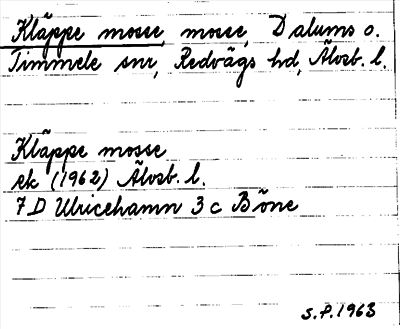 Kläppe mosse, mosse, Dalums o.
Timmele snr, Redvägs hd, Älvsb. l.
Kläppe mosse
ek (1962) Älvsb. l.
7 D Ulricehamn 3 c Böne
S.P. 1963